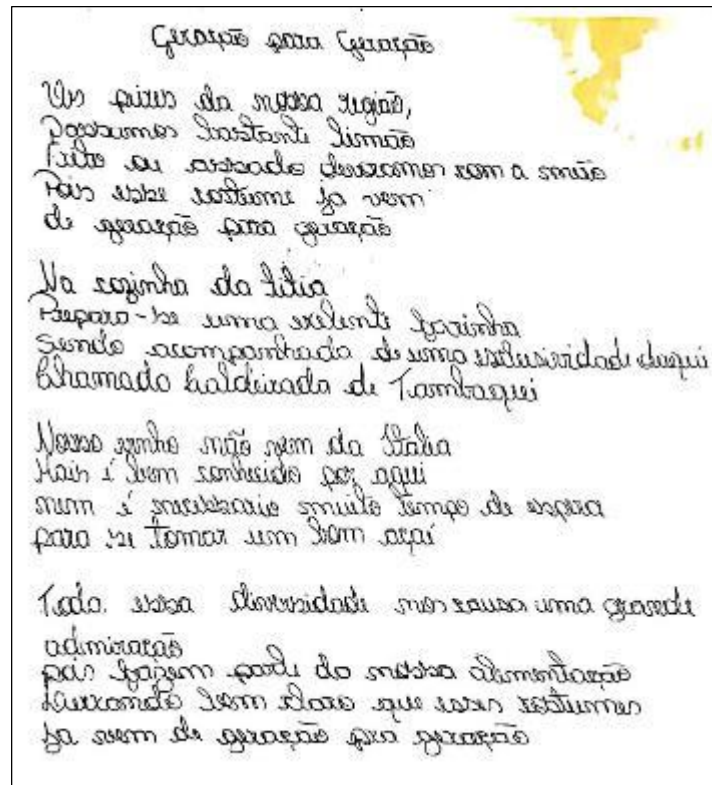 Geração para Geração
Us peixes da nossa região,
Passamos bastante limão
Frito ou assado devoramos com a mão
Pois esse costume ja vem
de geração para geração
Na cozinha da titia
Prepara-se uma exelente farinha
Sendo acompanhada de uma exclusividade daqui
Chamado Caldeirada de Tambaqui
Nosso vinho não vem da Italia
Mais é bem conhecido por aqui
nem é necessario muito tempo de espera
para se tomar um bom açaí
Toda essa diversidade nos causa uma grande
admiração
pois fazem parte da nossa alimentação
Deixando bem claro que esses costumes
ja vem de geração pra geração